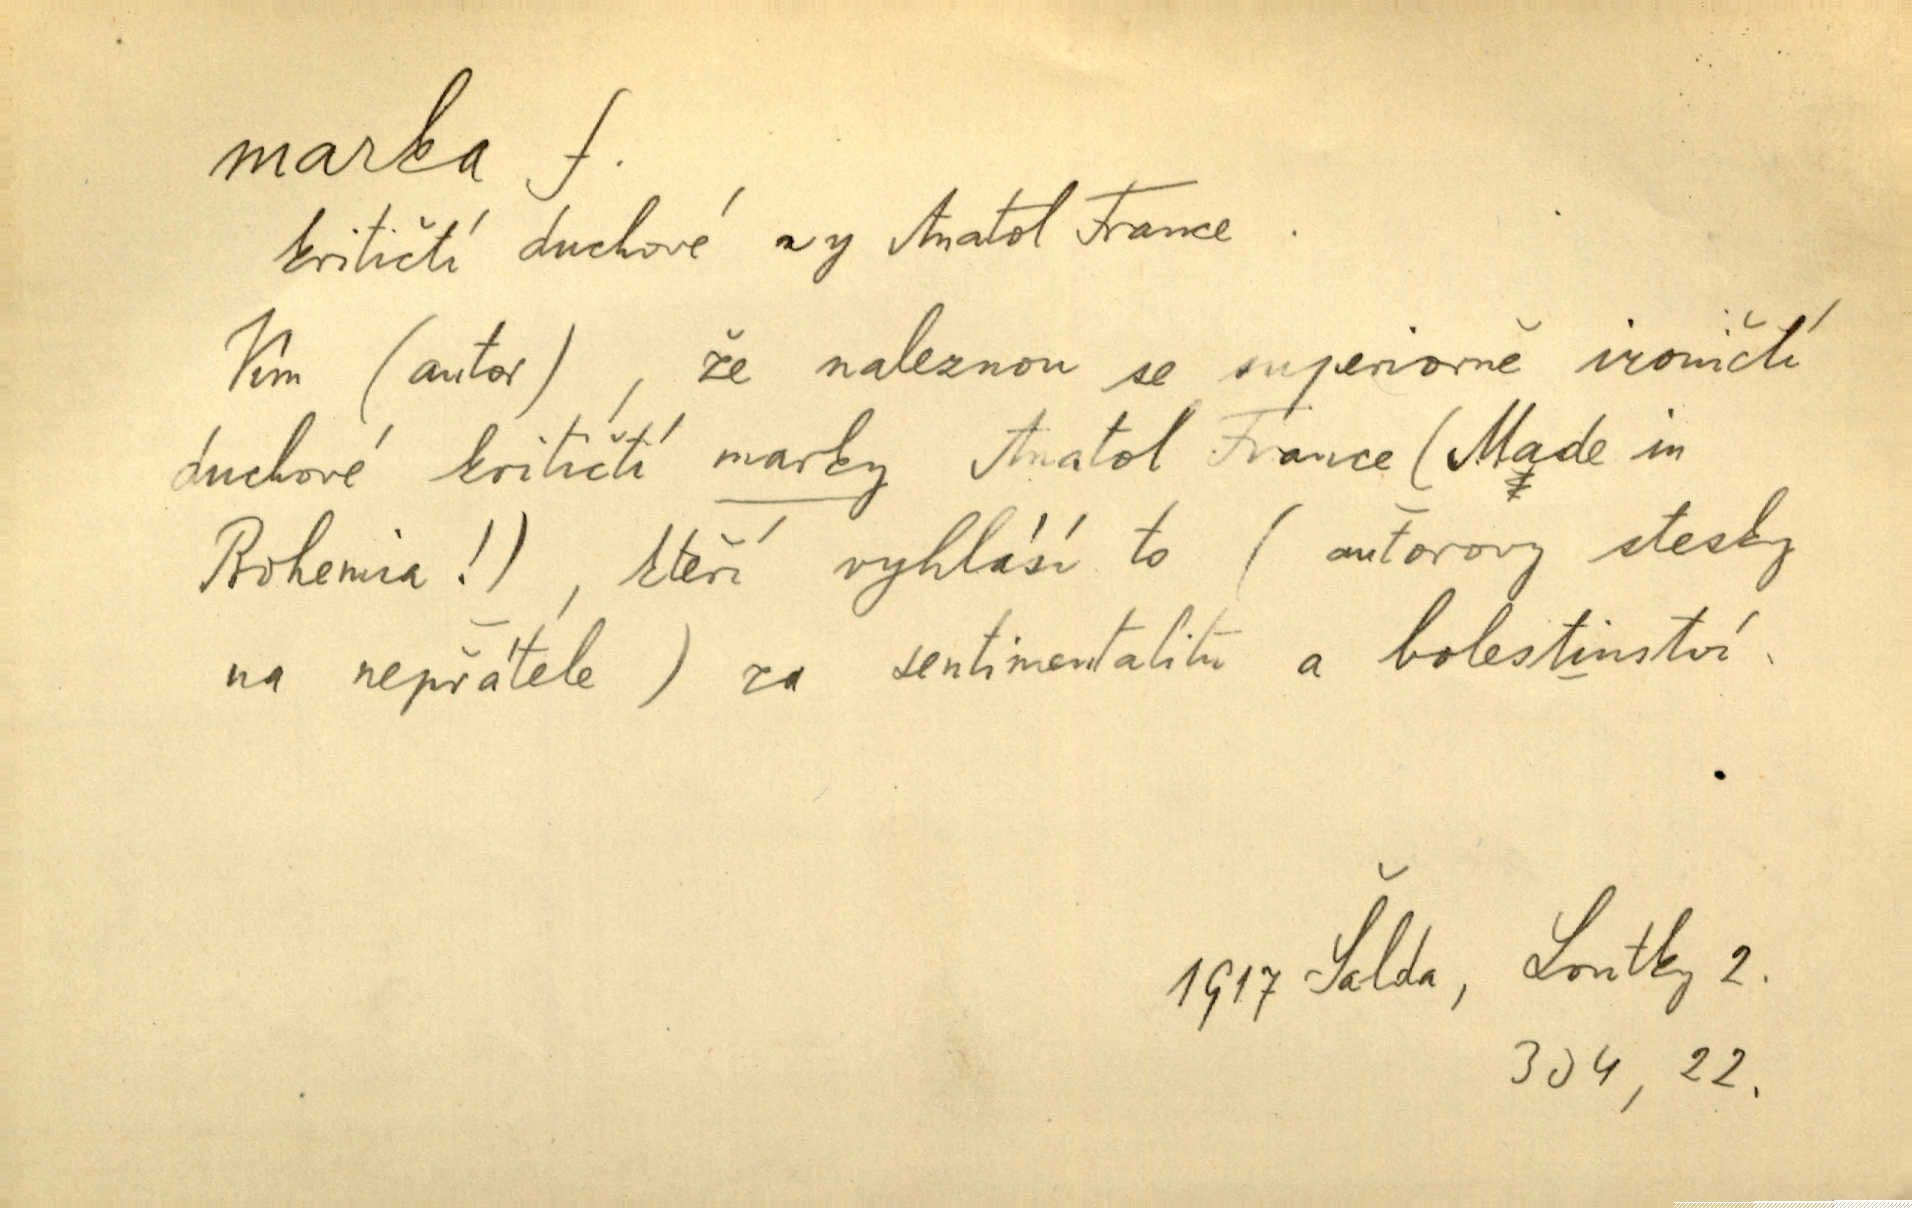 marka f.
kritičtí duchové ~y Anatol France.
Vím (autor), že naleznou se superiorně ironičtí
duchové kritičtí marky Anatol France (Made in
Bohemia!), kteří vyhlásí to (autorovy stesky
na nepřátele) za sentimentalitu a bolestinství.
1917 Šalda, Loutky 2.
304, 22.